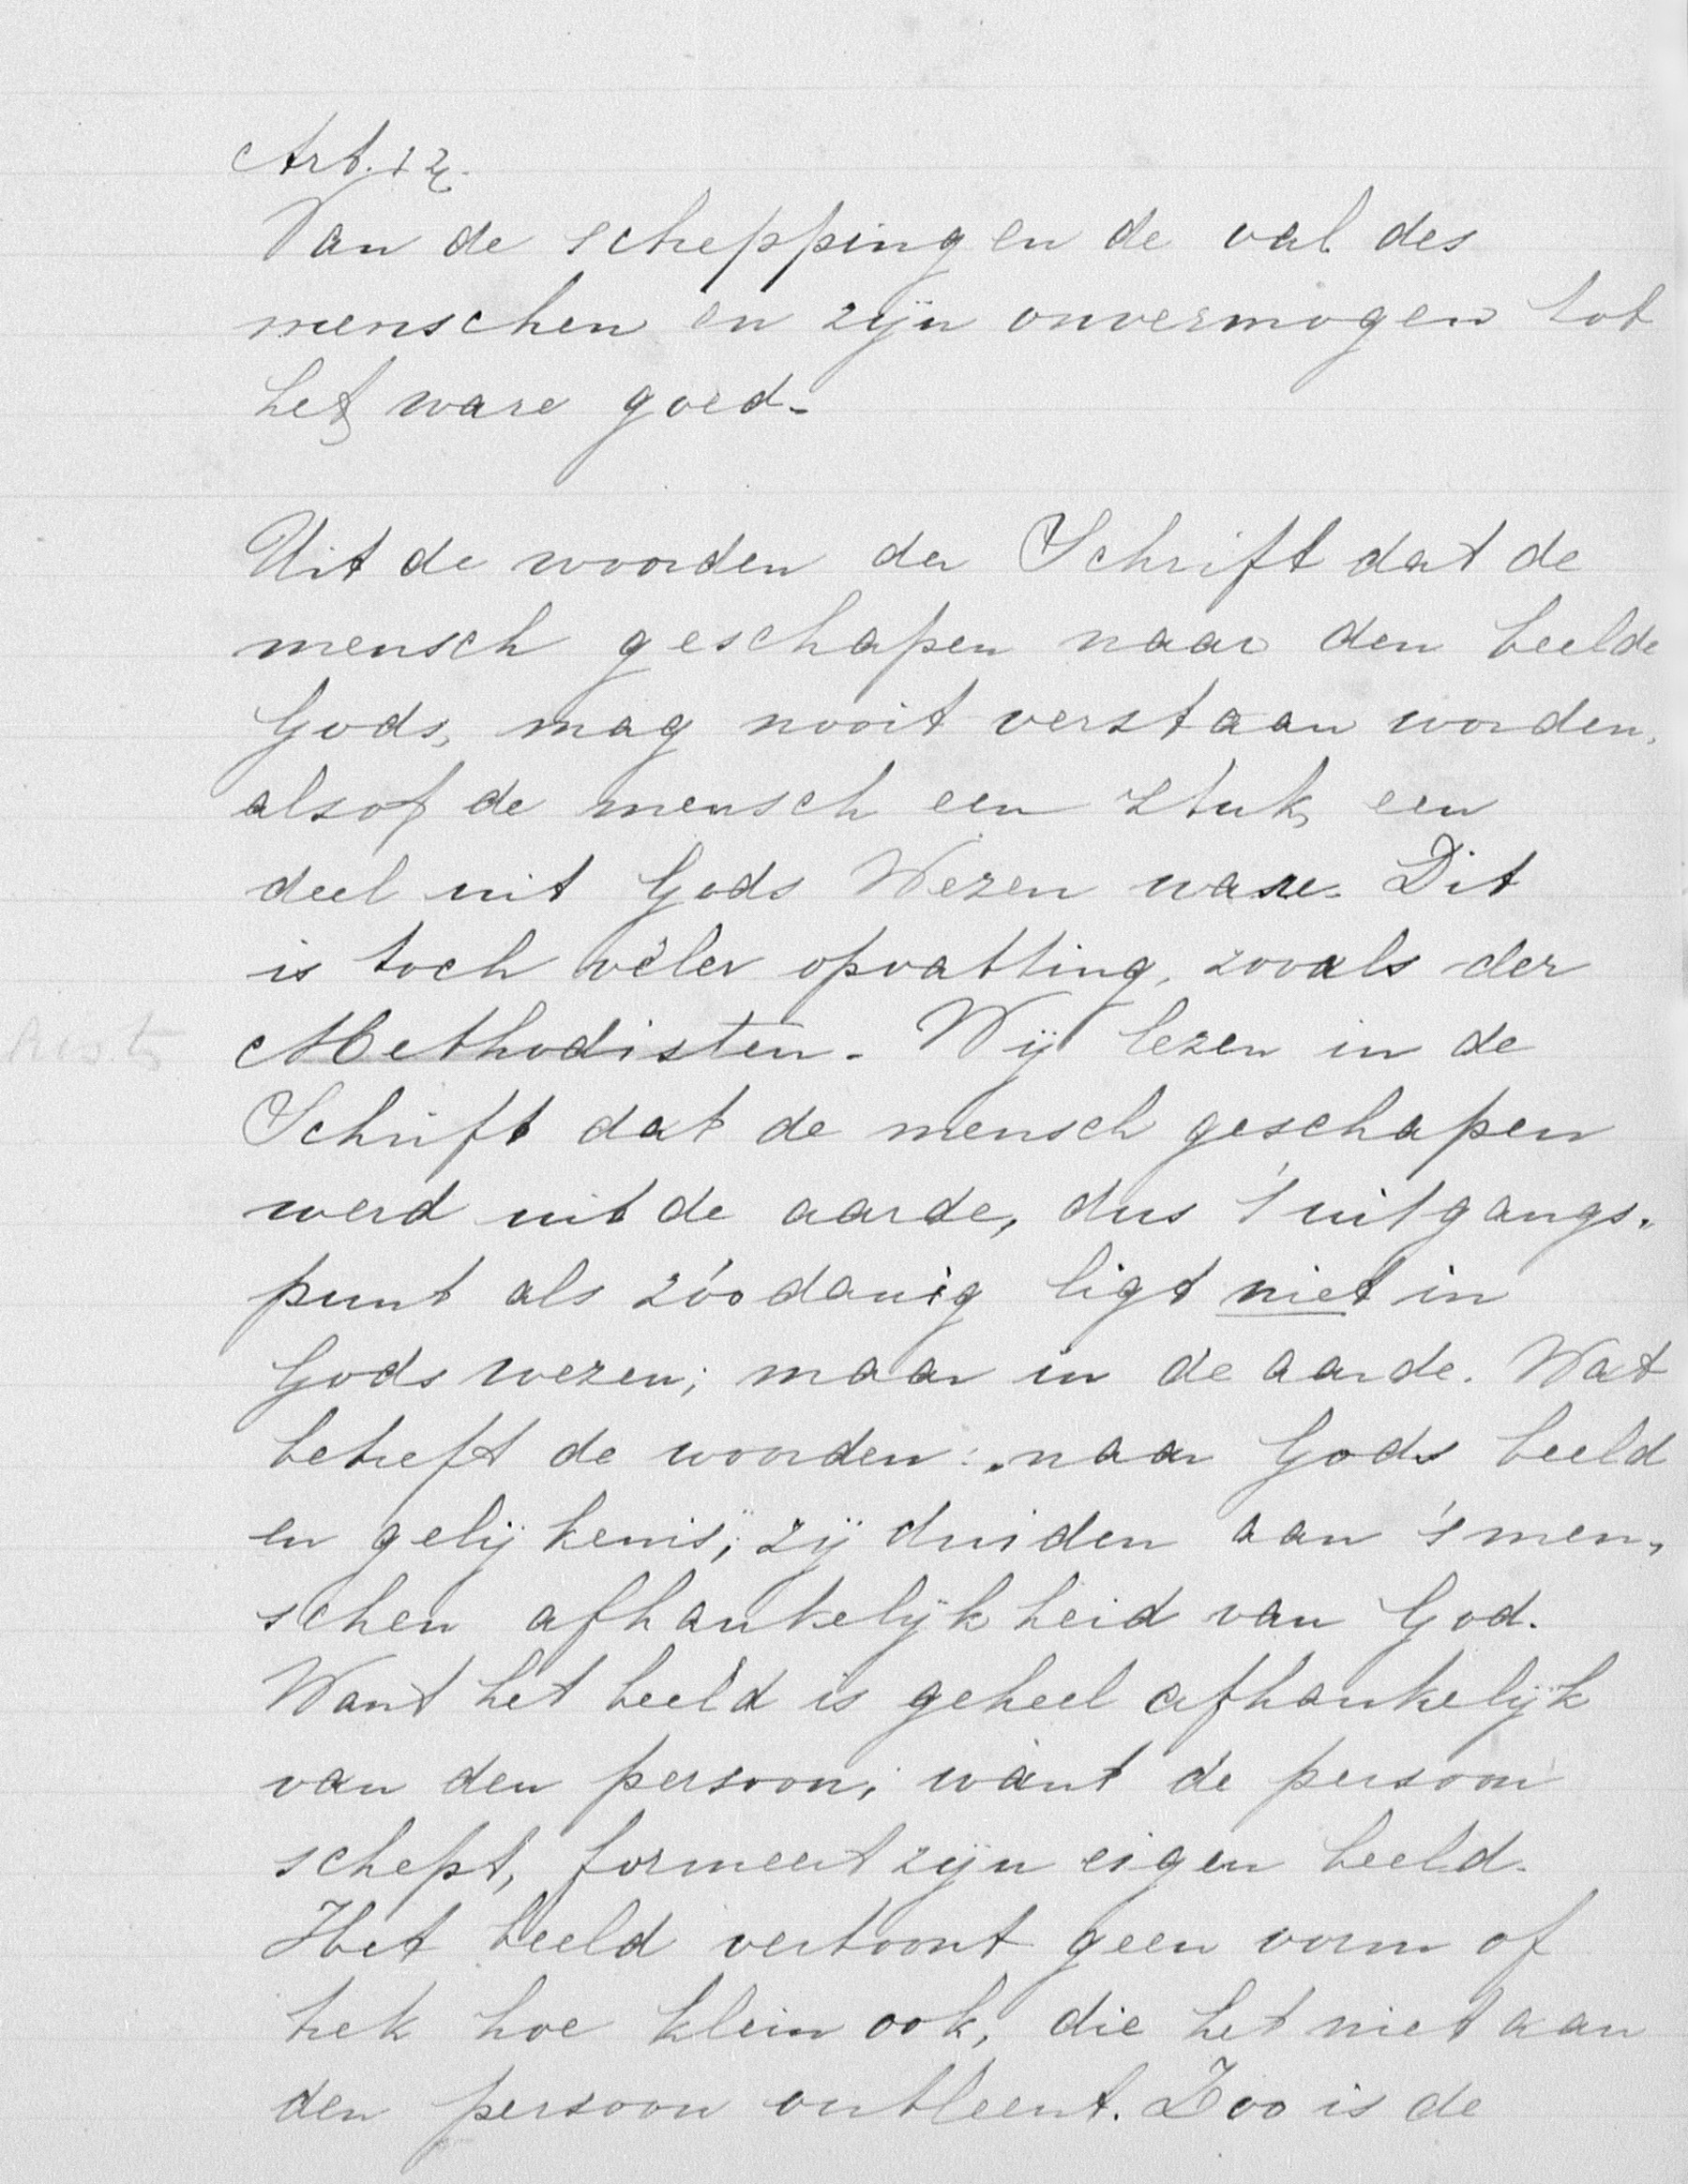 Art. 12.
Van de schepping en de val des
menschen en zijn onvermogen tot
het ware goed.
Uit de woorden der Schrift dat de
mensch geschapen naar den beelde
Gods, mag nooit verstaan worden,
alsof de mensch een stuk, een
deel uit Gods Wezen ware. Dit
is toch véler opvatting, zooals der
Methodisten. Wij lezen in de
Schrift dat de mensch geschapen
werd uit de aarde, dus 't uitgangs„
punt als zóodanig ligt niet in
Gods wezen; maar in de aarde. Wat
betreft de woorden: „naar Gods beeld
en gelijkenis", zij duiden aan 's men„
schen afhankelijkheid van God.
Want het beeld is geheel afhankelijk
van den persoon; want de persoon
schept, formeert zijn eigen beeld.
Het beeld vertoont geen vorm of
trek hoe klein ook, die het niet aan
den persoon ontleent. Zoo is de